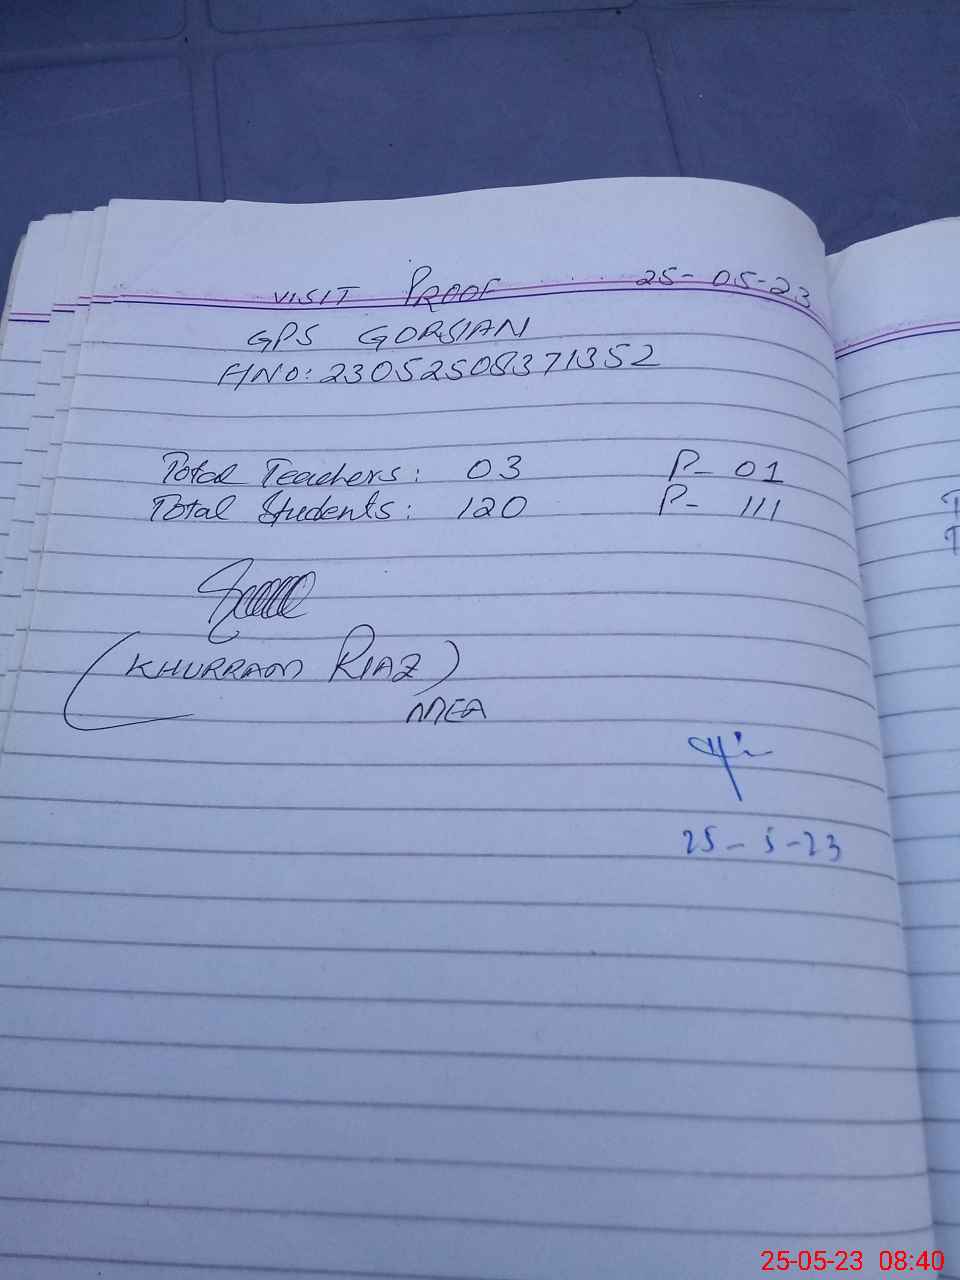 VISIT PROOF 25-05-23
GPS GORSIAN
A/NO: 23052508371352
Total Teachers: 03 P- 01
Total Students: 120 P- 111
(KHURRAM RIAZ)
MEA
25-5-23
25-05-23 08:40